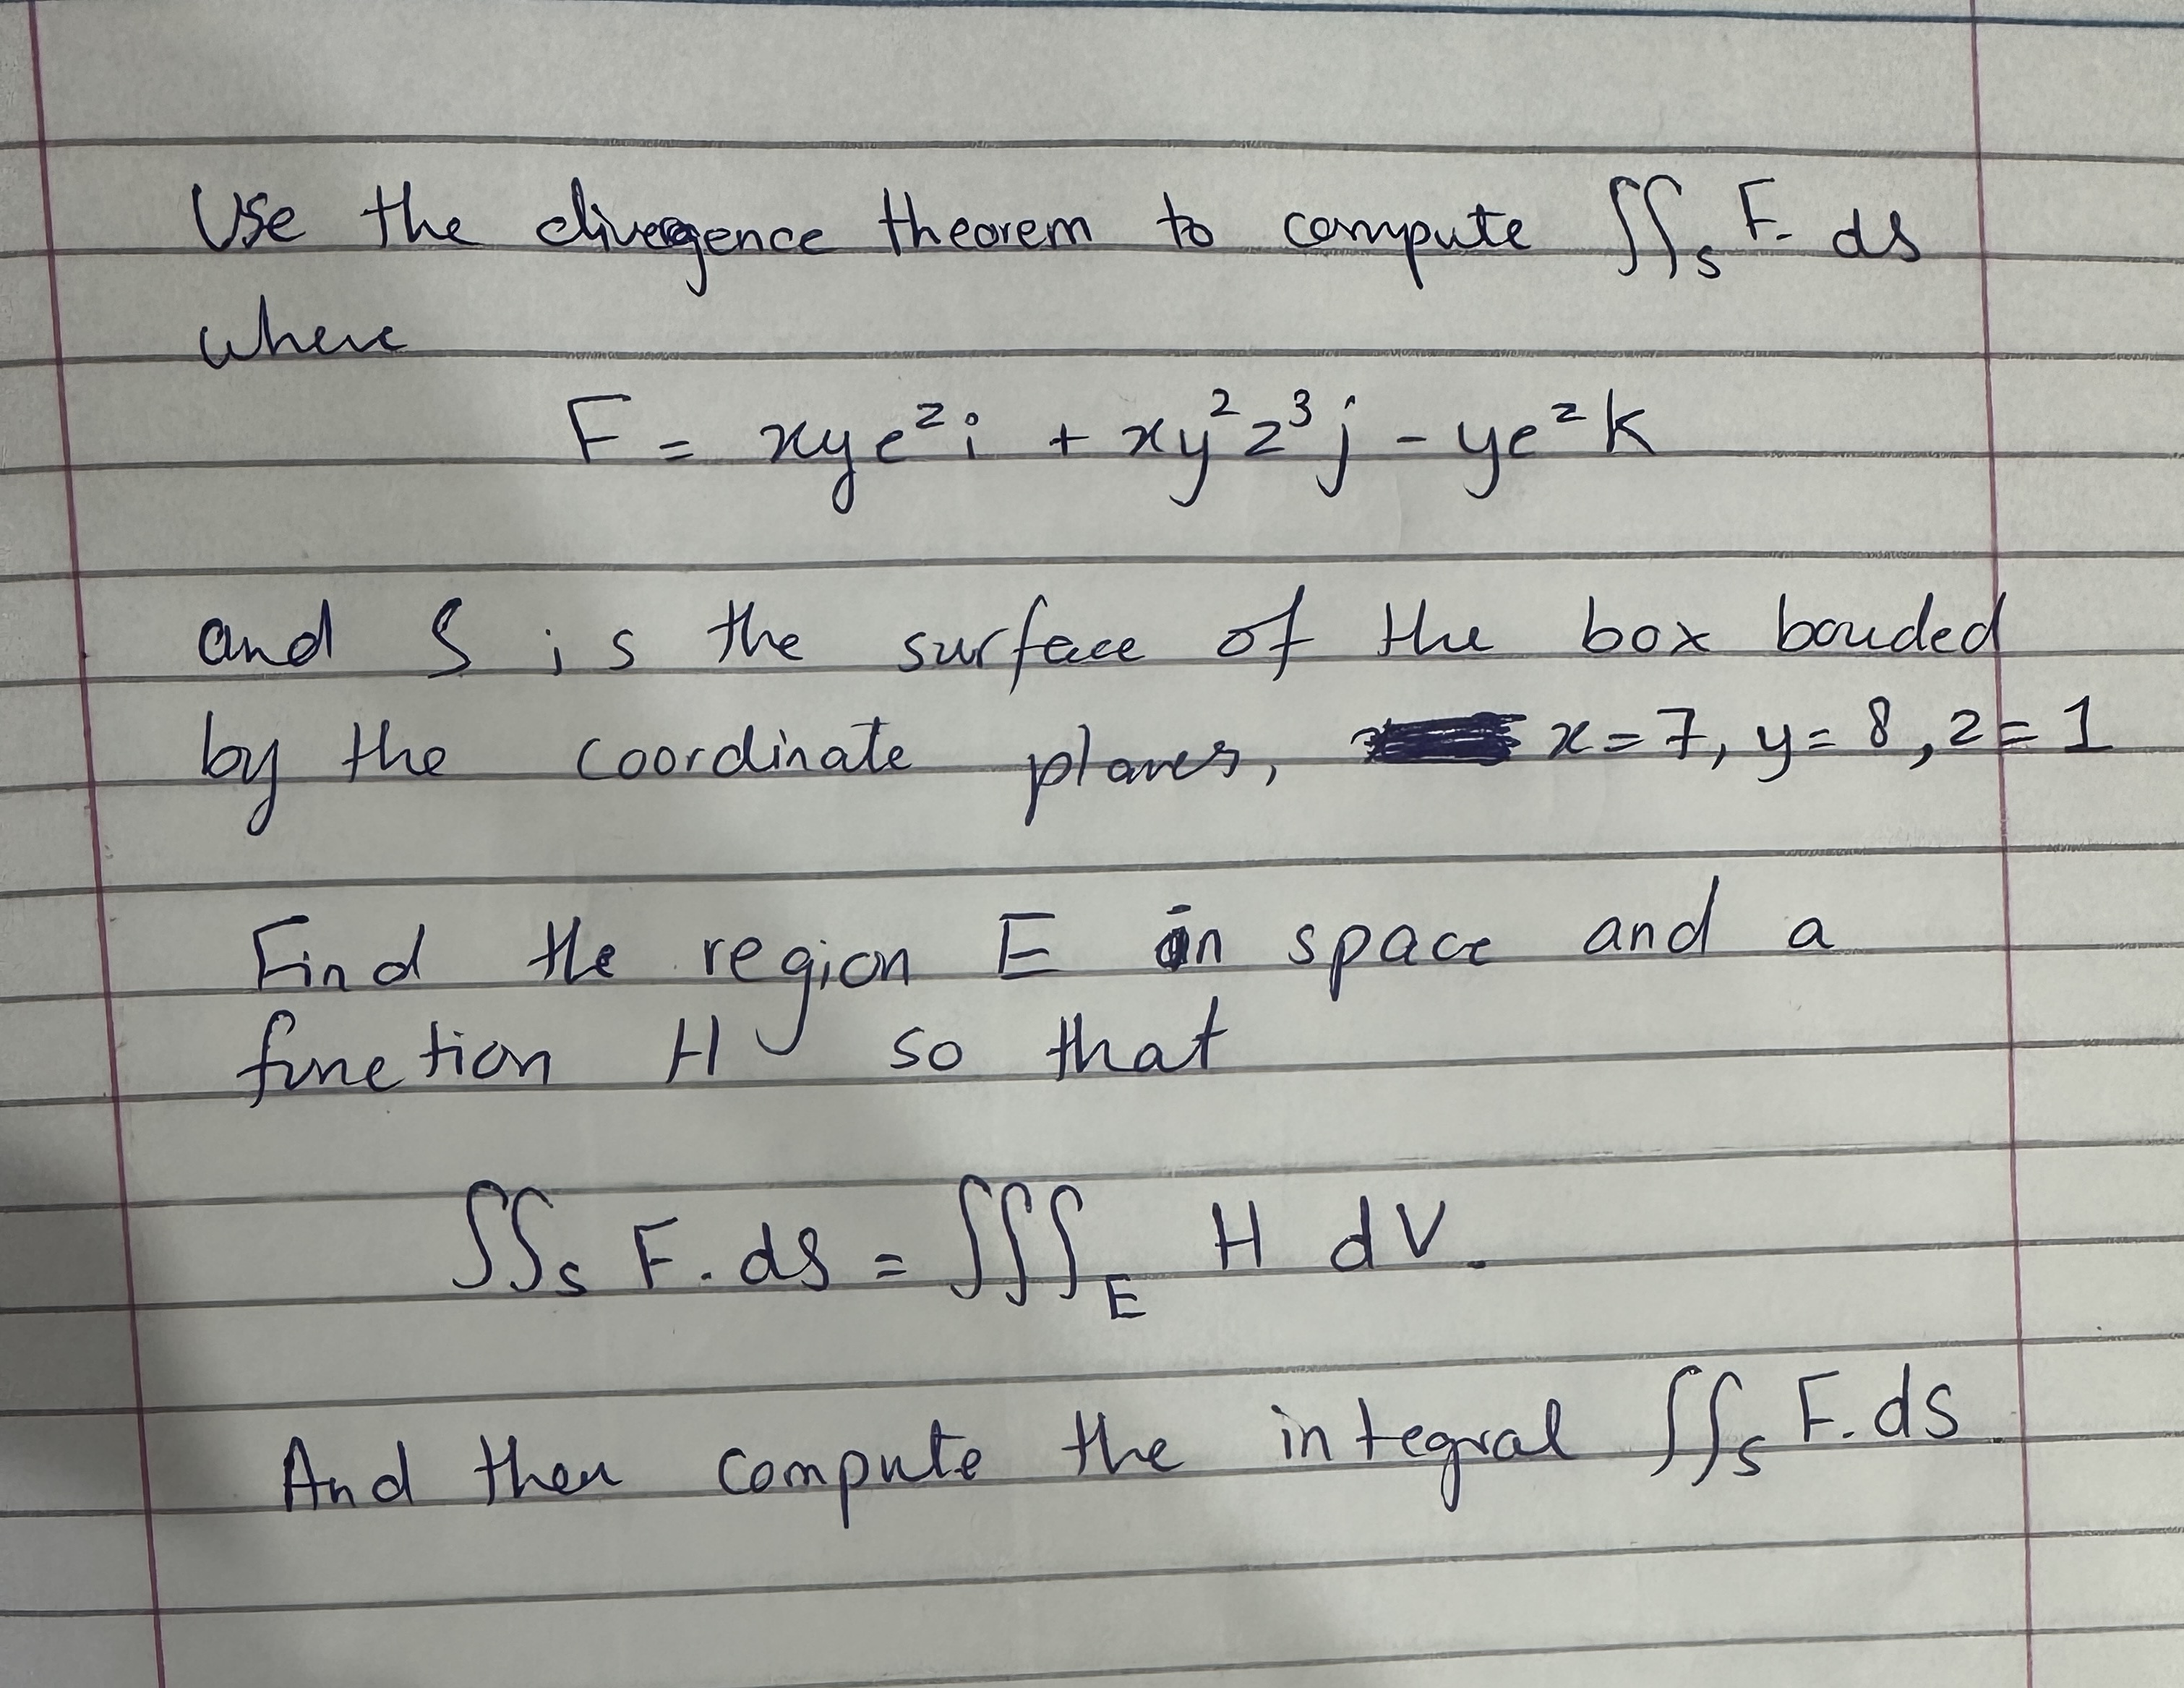 Use the divergence theorem to compute ∬_S F. ds
where
F = xye^z i + xy²z³j - ye^z k
and S is the surface of the box bouded
by the coordinate planes, x=7, y=8, z=1
Find the region E in space and a
function H so that
∬_S F. ds = ∭_E H dV.
And then compute the integral ∬_S F.ds